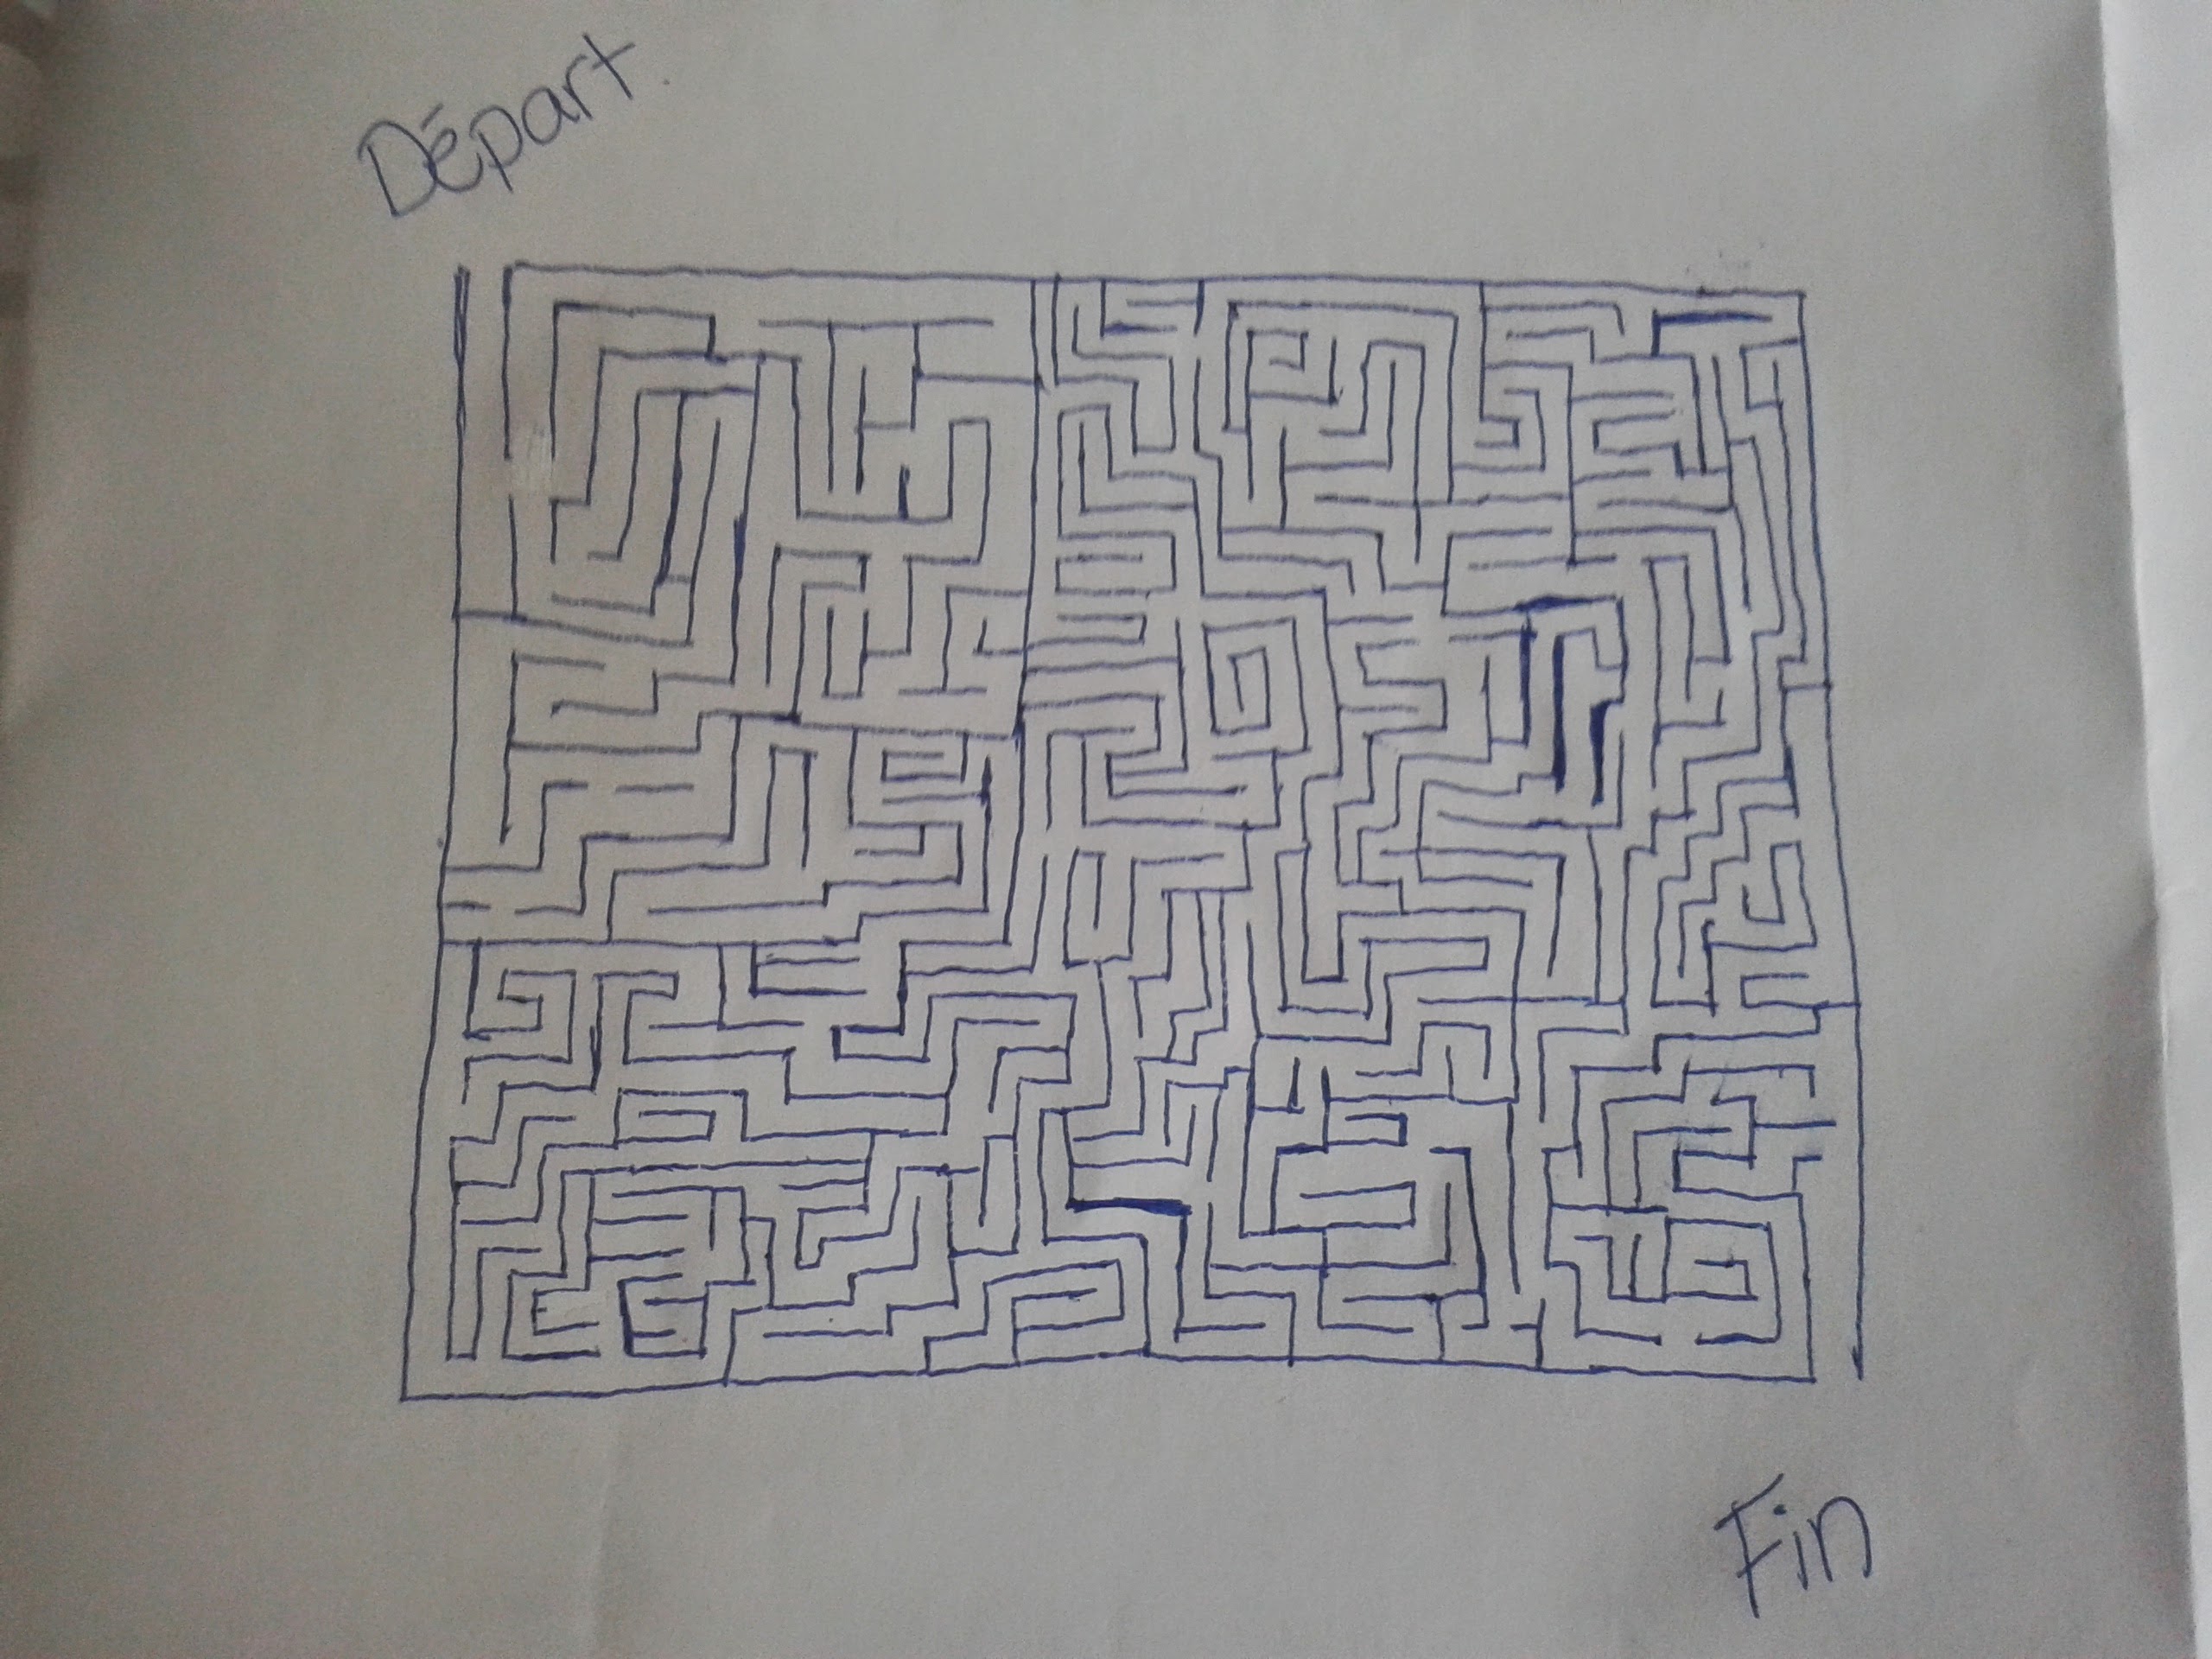 Départ.
Fin